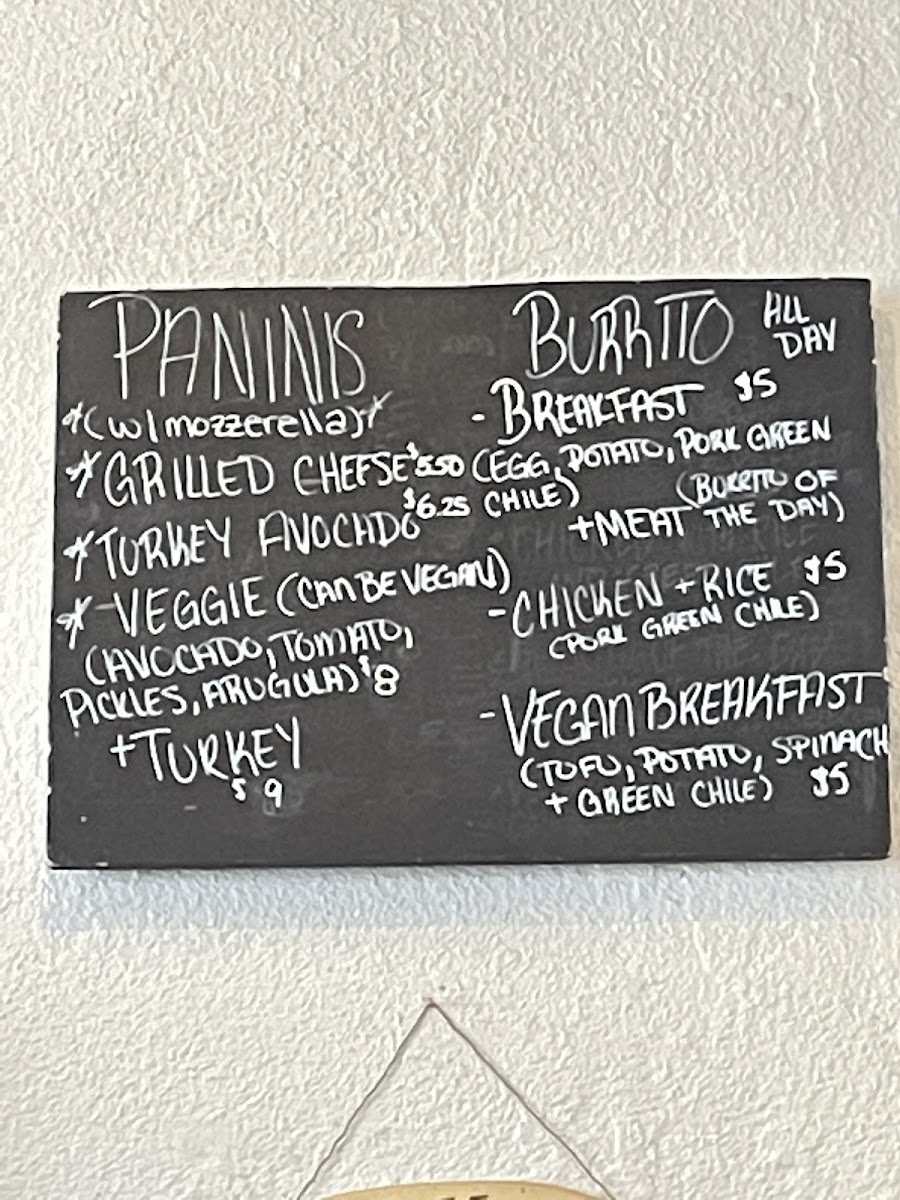 PANINIS
*(w/mozzerella)*
* GRILLED CHEESE $5.50
* TURKEY AVOCADO $6.25
* - VEGGIE (CAN BE VEGAN)
(AVOCADO, TOMATO,
PICKLES, ARUGULA) $8
+ TURKEY
$9
BURRITO ALL DAY
- BREAKFAST $5
(EGG, POTATO, PORK GREEN
CHILE) (BURRITO OF
+MEAT THE DAY)
- CHICKEN + RICE $5
(PORK GREEN CHILE)
- VEGAN BREAKFAST
(TOFU, POTATO, SPINACH
+ GREEN CHILE) $5